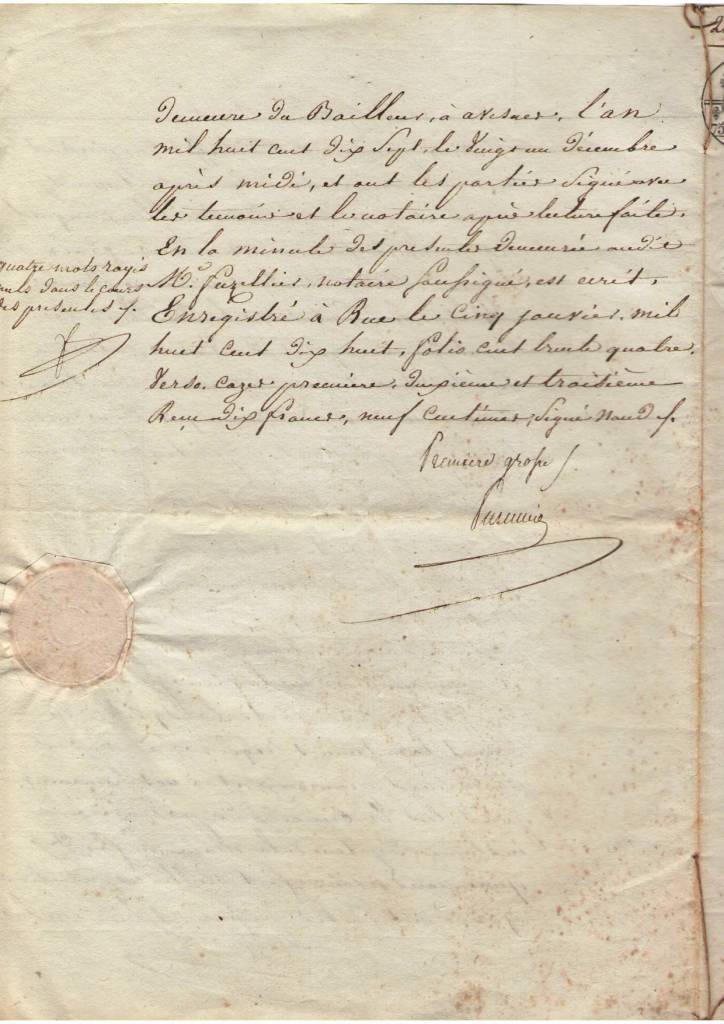 demeure du Bailleur, à avesnes, l'an
mil huit cent dix Sept, le Vingt un décembre
après midi, et ont les parties Signé avec
les temoins et le notaire après lecture faite.
En la minute des presentes demeurée audit
Me. notaire soussigné, est ecrit,
Enregistré à Rue le Cinq janvier, mil
huit cent dix huit, folio cent trente quatre,
Verso, cazes premiere, deuxième et troisième
Reçu dix francs, neuf centimes, Signé
quatre mots rayés
nuls dans le cours
des presentes
Premiere grosse